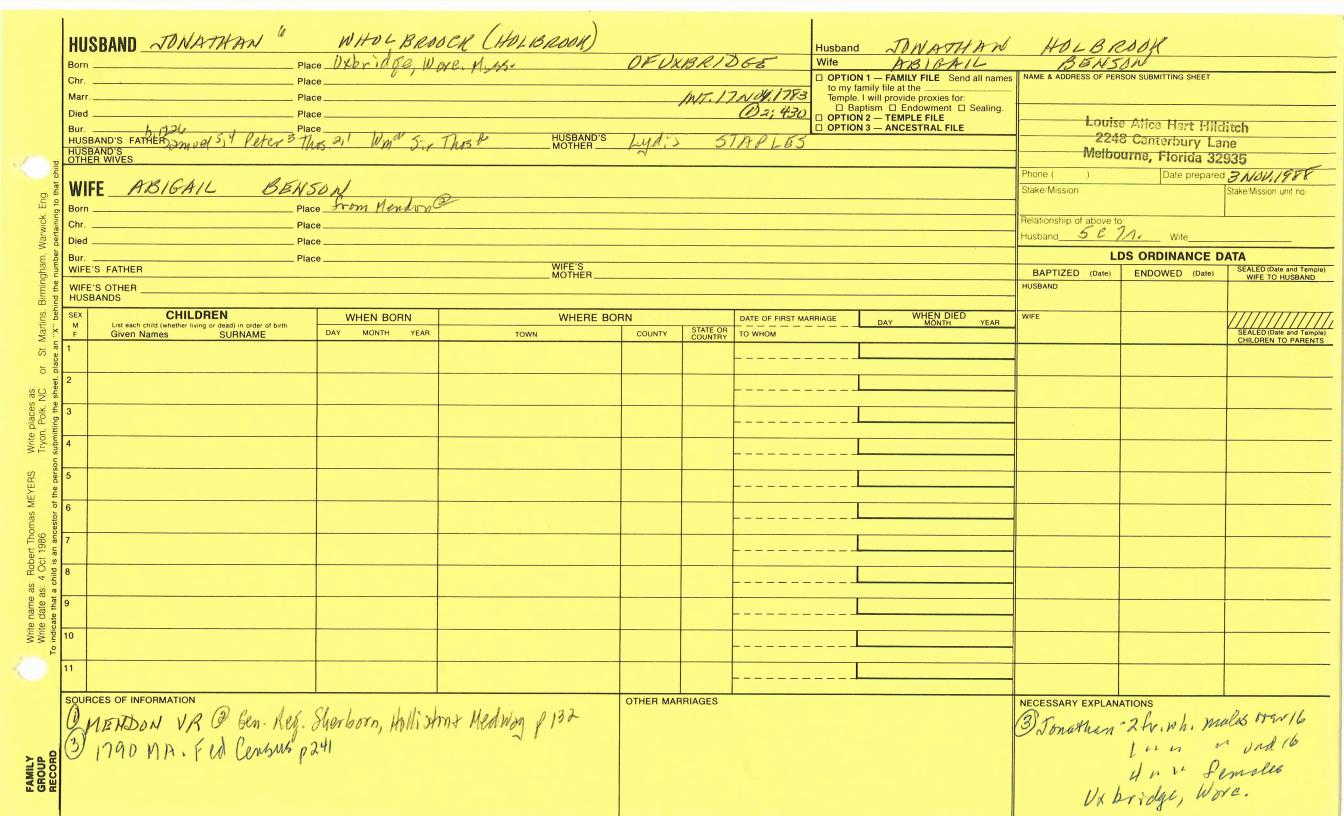 HUSBAND JONATHAN " WHOLBROOCK (HOLBROOK)
Born Place Uxbridge, Worc. Mass. OF UXBRIDGE
Chr. Place
Marr. Place INT. 17 Nov. 1783
Died Place ① 2; 430
Bur. Place
b. 1726
HUSBAND'S FATHER Samuel 5,4 Peter 3 Thos 2,1 Wm Sir Thos HUSBAND'S MOTHER Lydia STAPLES
HUSBAND'S OTHER WIVES
WIFE ABIGAIL BENSON
Born Place from Mendon ②
Chr. Place
Died Place
Bur. Place
WIFE'S FATHER WIFE'S MOTHER
WIFE'S OTHER HUSBANDS
Husband JONATHAN HOLBROOK
Wife ABIGAIL BENSON
☐ OPTION 1 — FAMILY FILE Send all names
to my family file at the
Temple. I will provide proxies for:
☐ Baptism ☐ Endowment ☐ Sealing.
☐ OPTION 2 — TEMPLE FILE
☐ OPTION 3 — ANCESTRAL FILE
NAME & ADDRESS OF PERSON SUBMITTING SHEET
Louise Alice Hart Hilditch
2248 Canterbury Lane
Melbourne, Florida 32935
Phone ( ) Date prepared 3 NOV. 1988
Stake/Mission Stake/Mission unit no.
Relationship of above to:
Husband 5 c 7r. Wife
LDS ORDINANCE DATA
BAPTIZED (Date) ENDOWED (Date) SEALED (Date and Temple) WIFE TO HUSBAND
HUSBAND
WIFE
SEALED (Date and Temple) CHILDREN TO PARENTS
SEX M F
CHILDREN
List each child (whether living or dead) in order of birth
Given Names SURNAME
WHEN BORN
DAY MONTH YEAR
WHERE BORN
TOWN COUNTY STATE OR COUNTRY
DATE OF FIRST MARRIAGE
TO WHOM
WHEN DIED
DAY MONTH YEAR
1
2
3
4
5
6
7
8
9
10
11
SOURCES OF INFORMATION
① MENDON VR ② Gen. Reg. Sherborn, Holliston & Medway p 132
③ 1790 MA. Fed Census p241
OTHER MARRIAGES
NECESSARY EXPLANATIONS
③ Jonathan - 2 fr. wh. males over 16
1 " " " und 16
4 " " females
Uxbridge, Worc.
Write name as: Robert Thomas MEYERS Write places as: Tryon, Polk, NC or St. Martins, Birmingham, Warwick, Eng
Write date as: 4 Oct 1986
To indicate that a child is an ancestor of the person submitting the sheet, place an "X" behind the number pertaining to that child
FAMILY
GROUP
RECORD